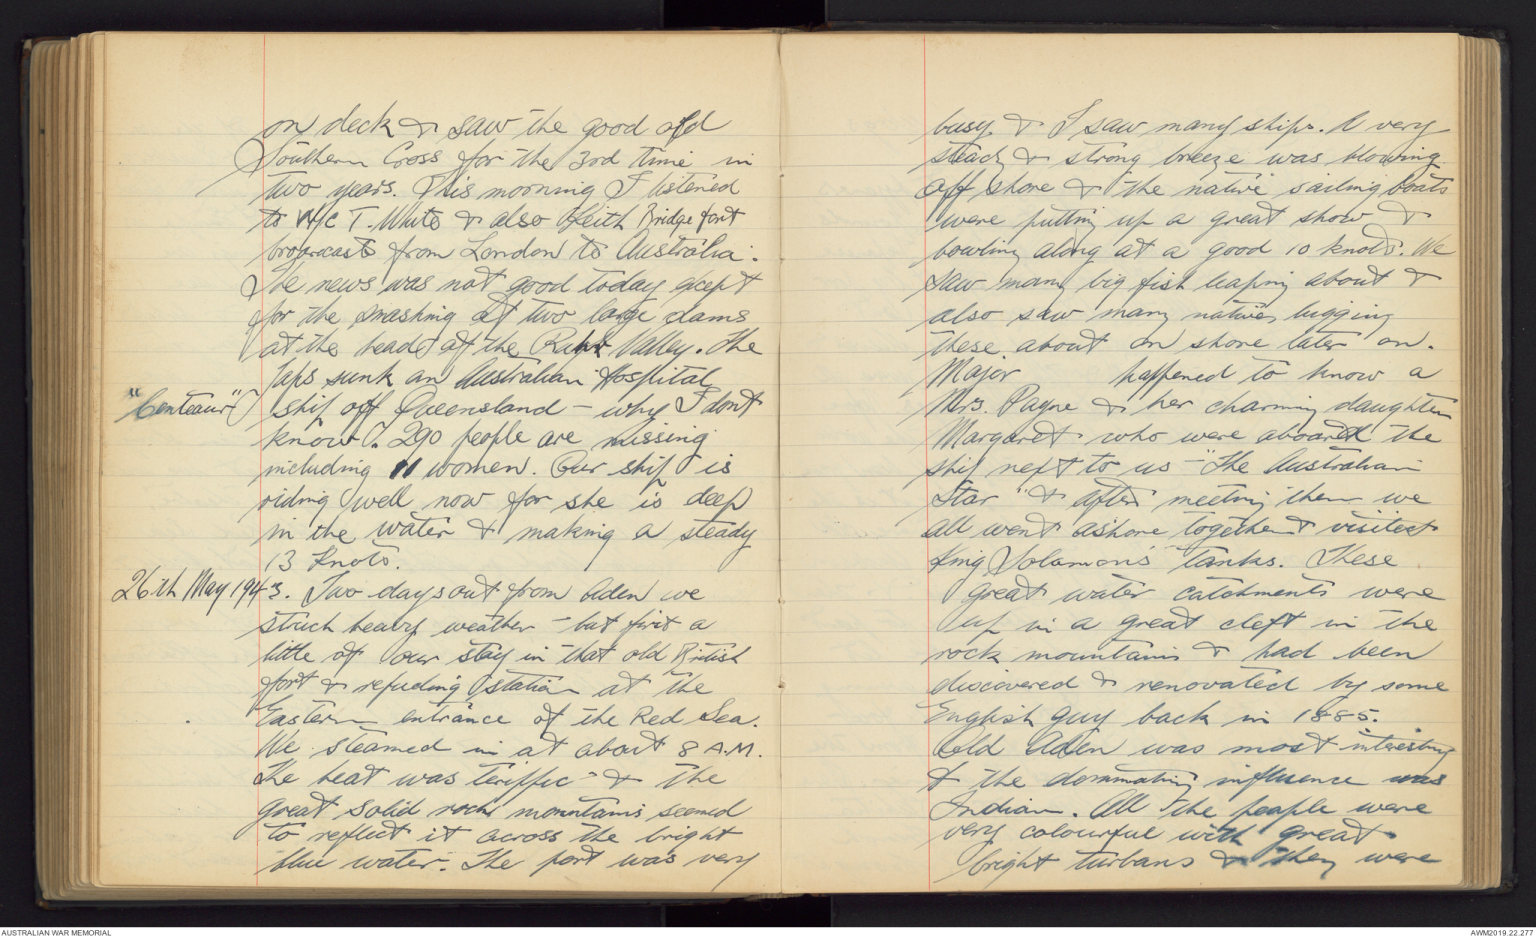 on deck & saw the good old
Southern Cross for the 3rd time in
two years. This morning I listened
to W/C T. White & also Keith Bridge fort
broadcasts from London to Australia.
The news was not good today except
for the smashing of two large dams
at the heads of the Ruhr Valley. The
Japs sunk an Australian Hospital
"Centaur" ship off Queensland - why I don't
know. 290 people are missing
including 11 women. Our ship is
riding well now for she is deep
in the water & making a steady
13 knots.
26th May 1943. Two days out from Aden we
struck heavy weather - but first a
little of our stay in that old British
fort & refueling station at the
Eastern entrance of the Red Sea.
We steamed in at about 8 A.M.
The heat was teriffic & the
great solid rock mountains seemed
to reflect it across the bright
blue water. The port was very
busy & I saw many ships. A very
steady & strong breeze was blowing
off shore & the native sailing boats
were putting up a great show &
bowling along at a good 10 knots. We
saw many big fish leaping about &
also saw many natives lugging
these about on shore later on.
Major happened to know a
Mrs. Payne & her charming daughter
Margaret who were aboard the
ship next to us - "The Australian
Star" & after meeting them we
all went ashore together & visited
King Solomon's tanks. These
great water catchments were
up in a great cleft in the
rock mountains & had been
discovered & renovated by some
English guy back in 1885.
Old Aden was most interesting
& the dominating influence was
Indian. All the people were
very colourful with great
bright turbans & they were
AUSTRALIAN WAR MEMORIAL
AWM2019.22.277